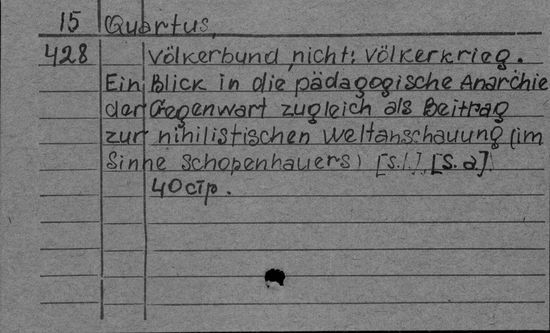 15 Quartus,
428 Völkerbund, nicht: Völkerkrieg.
Ein Blick in die pädagogische Anarchie
der Gegenwart zugleich als Beitrag
zur nihilistischen Weltanschauung (im
Sinne Schopenhauers) [S.l.], [S.a].
40 стр.